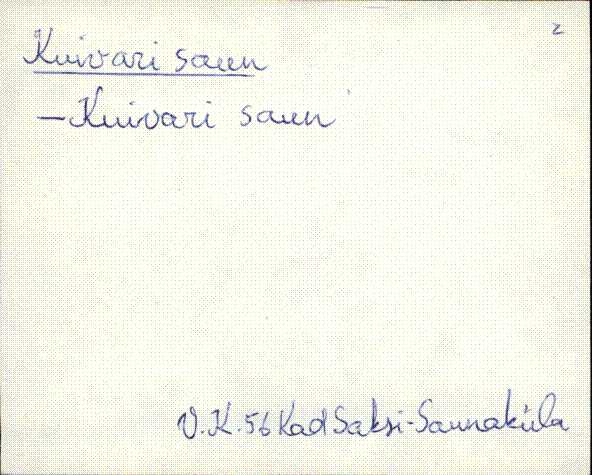 2
Kuivari saun
– Kuivari saun
V. K. 56 Kad Saksi-Saunaküla